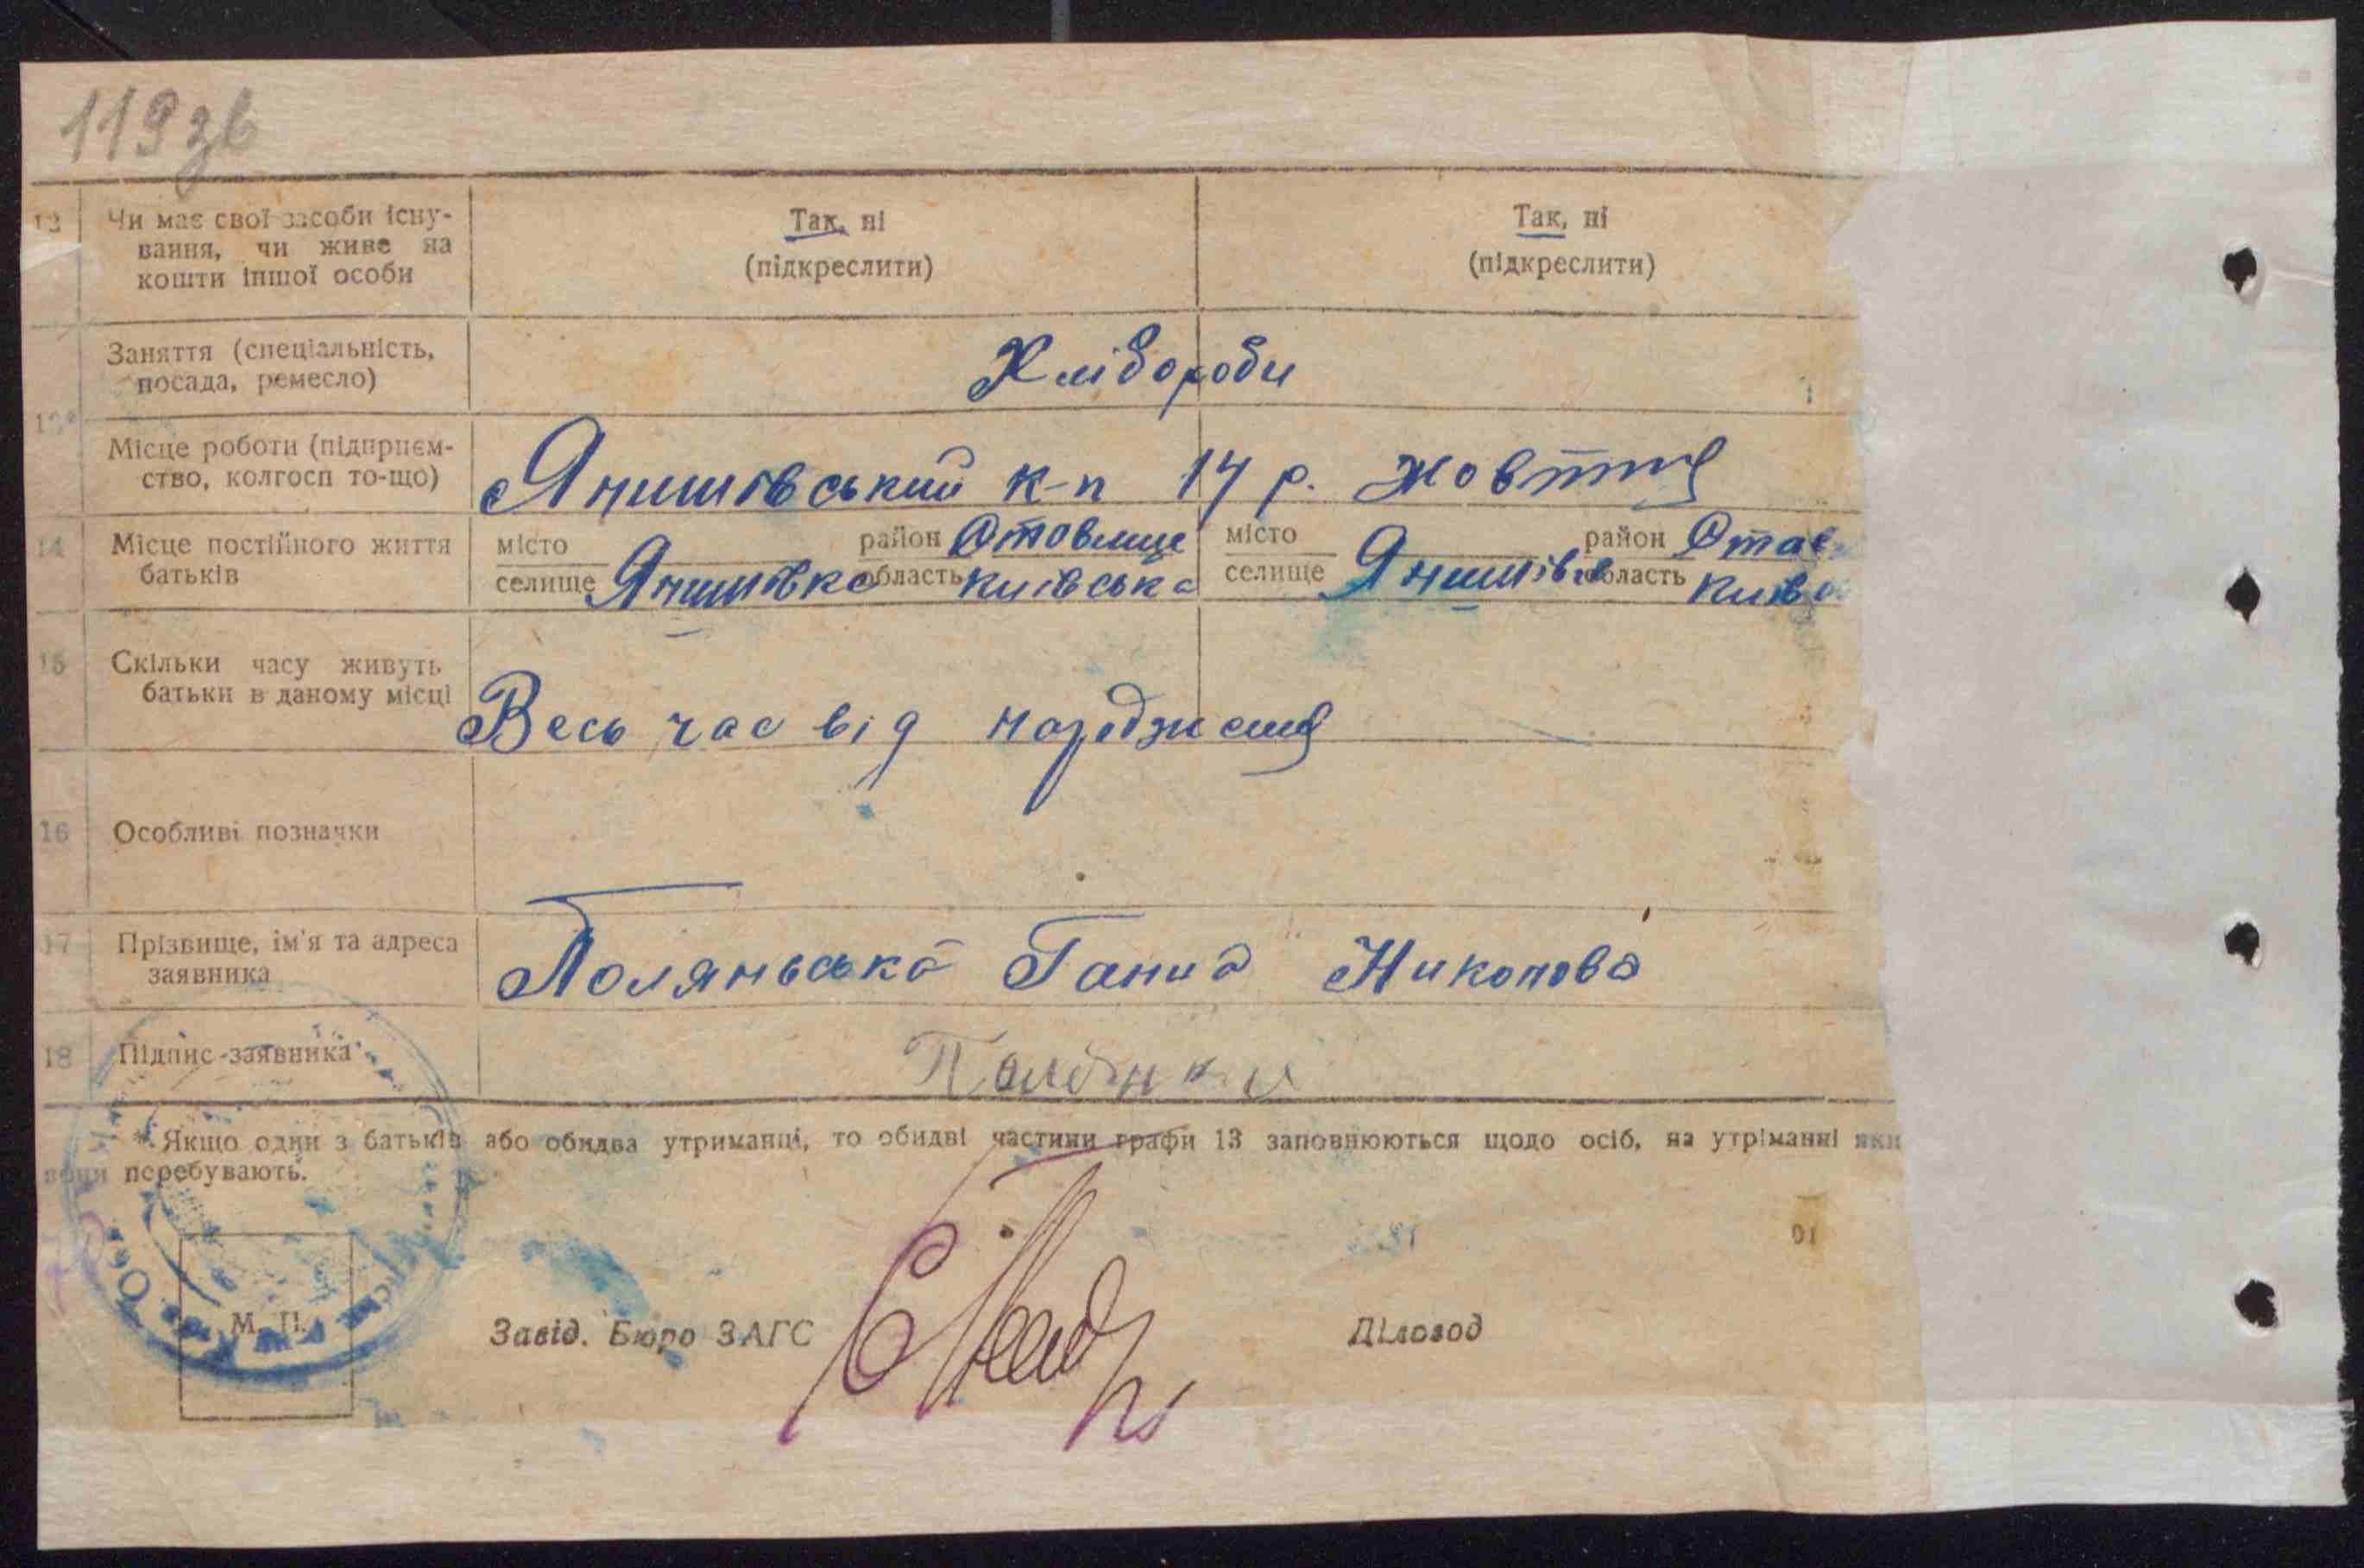 119зв
12 Чи має свої засоби існу-
вання, чи живе на
кошти іншої особи
Так, ні
(підкреслити)
Так, ні
(підкреслити)
Заняття (спеціальність,
посада, ремесло)
Хлібороби
13*
Місце роботи (підприєм-
ство, колгосп то-що)
Янишівський к-п 17 р. жовтня
14 Місце постійного життя
батьків
місто район Ставище
селище Янишівка область Київська
місто район Став
селище Янишівка область Київ
15 Скільки часу живуть
батьки в даному місці
Весь час від народження
16 Особливі позначки
17 Прізвище, ім'я та адреса
заявника
Поляньська Ганна
18 Підпис заявника
* Якщо один з батьків або обидва утриманці, то обидві частини графи 13 заповнюються щодо осіб, на утріманні яки
вони перебувають.
М. П.
Завід. Бюро ЗАГС
Діловод